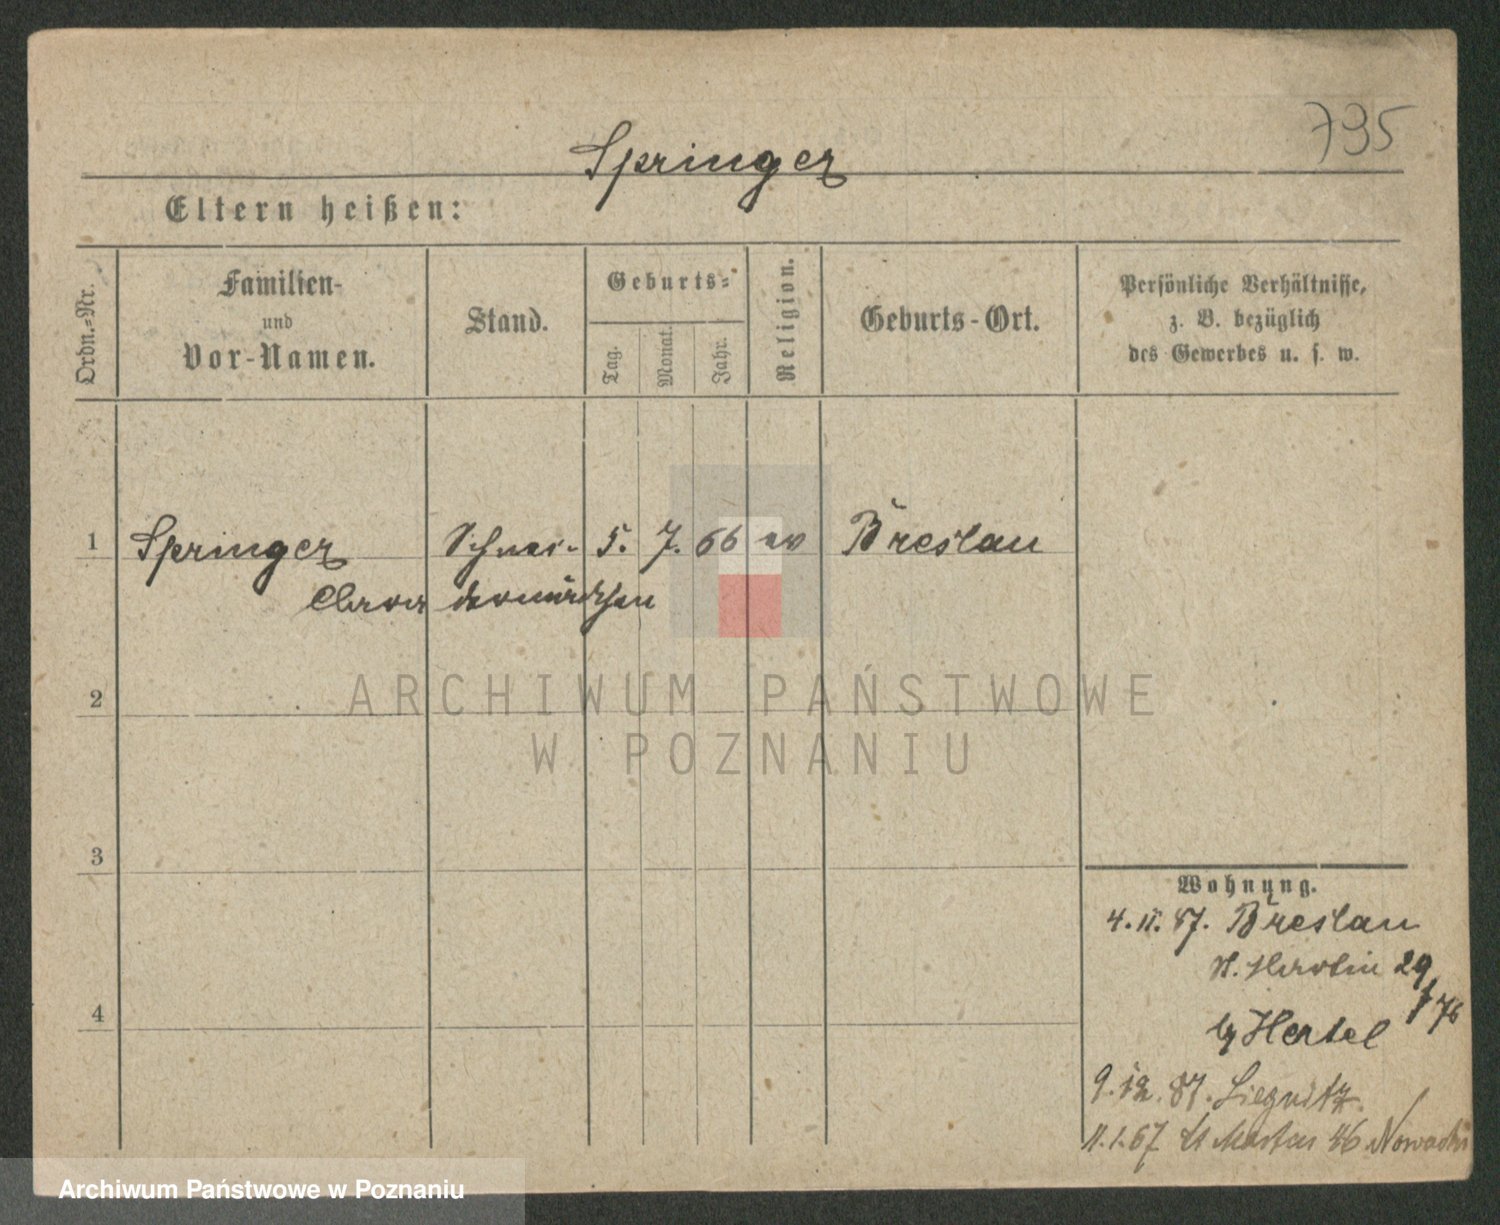 795
Springer
Eltern heißen:
Ordn.=Nr.
Familien-
und
Vor-Namen.
Stand.
Geburts=
Tag.
Monat.
Jahr.
Religion.
Geburts-Ort.
Persönliche Verhältnisse,
z. B. bezüglich
des Gewerbes u. s. w.
1 Springer Schnei- 5. 7. 66 ev Breslau
Clara dermädchen
2
ARCHIWUM PAŃSTWOWE
W POZNANIU
3
Wohnung.
4. 11. 87. Breslau
St. Martin 29
/76
4
by Hertel
9. 12. 87. Liegnitz.
11. 1. 67 St Martin 46
Archiwum Państwowe w Poznaniu